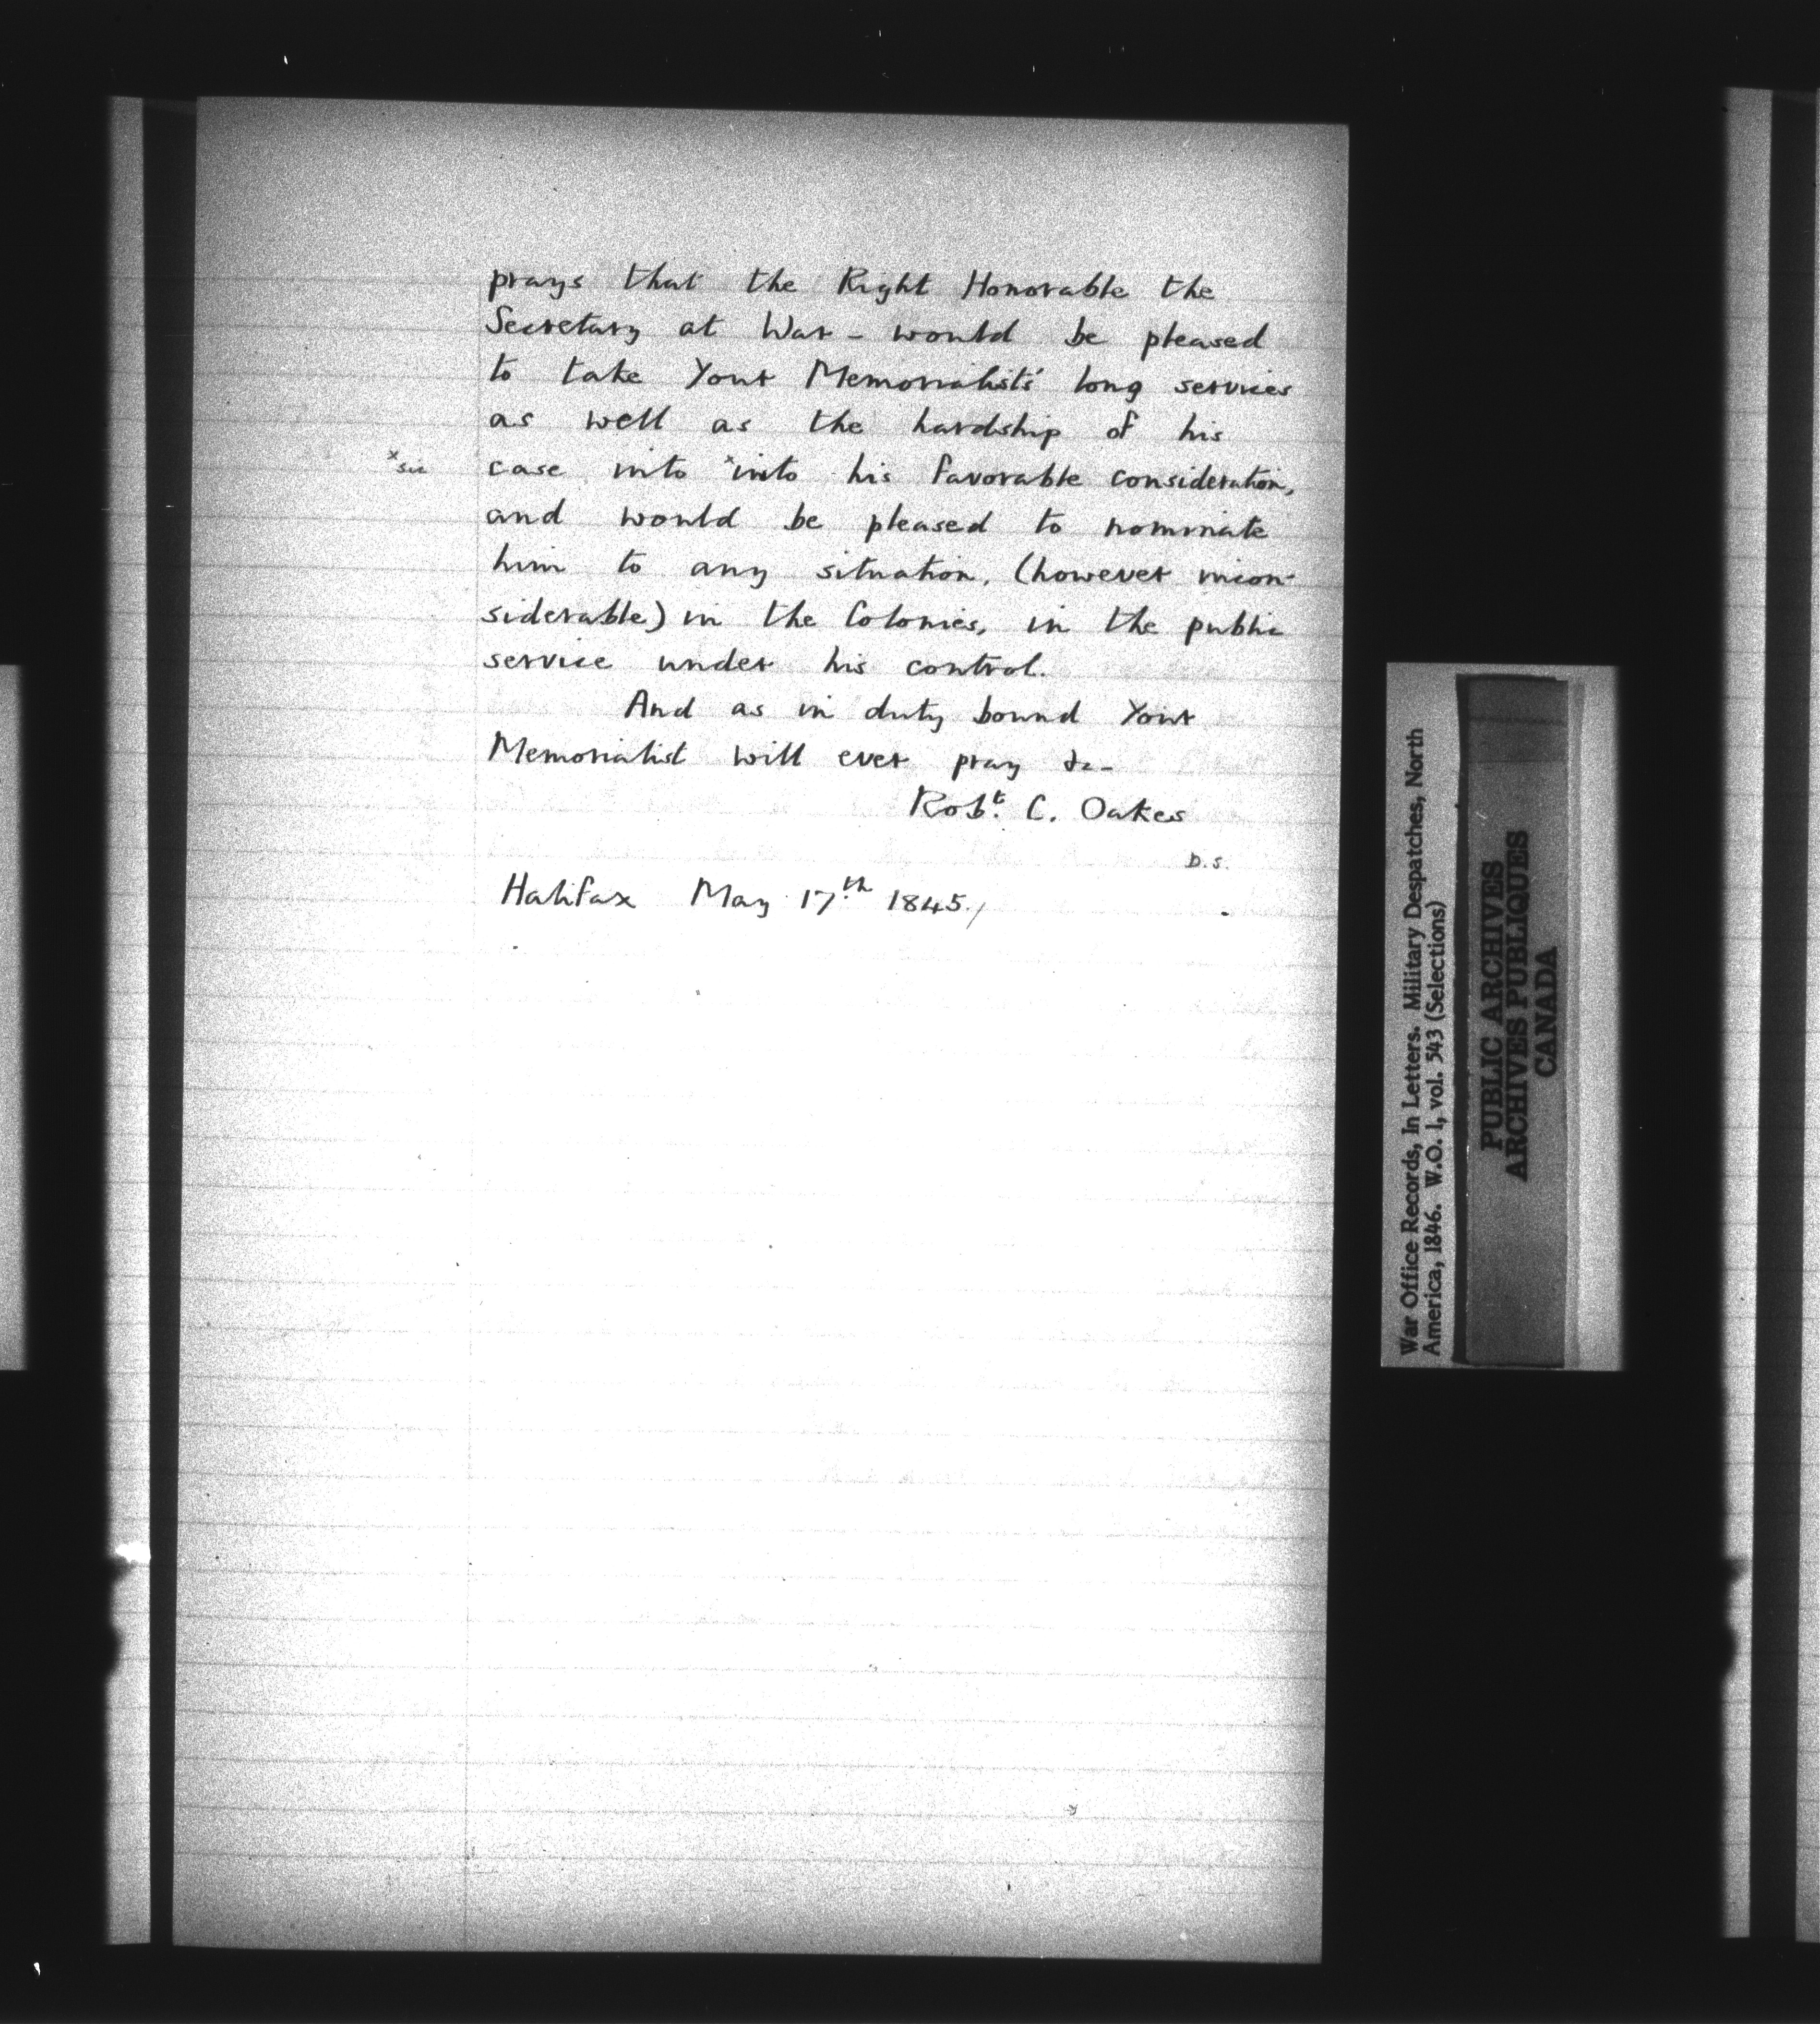 prays that the Right Honorable the
Secretary at War - would be pleased
to take Your Memorialists' long services
as well as the hardship of his
×sic case into ×into his favorable consideration,
and would be pleased to nominate
him to any situation, (however incon-
siderable) in the Colonies, in the public
service under his control.
And as in duty bound Your
Memorialist will ever pray &c-
Robt. C. Oakes
D.S.
Halifax May 17th 1845./
War Office Records, In Letters. Military Despatches, North
America, 1846. W.O. 1, vol. 543 (Selections)
PUBLIC ARCHIVES
ARCHIVES PUBLIQUES
CANADA